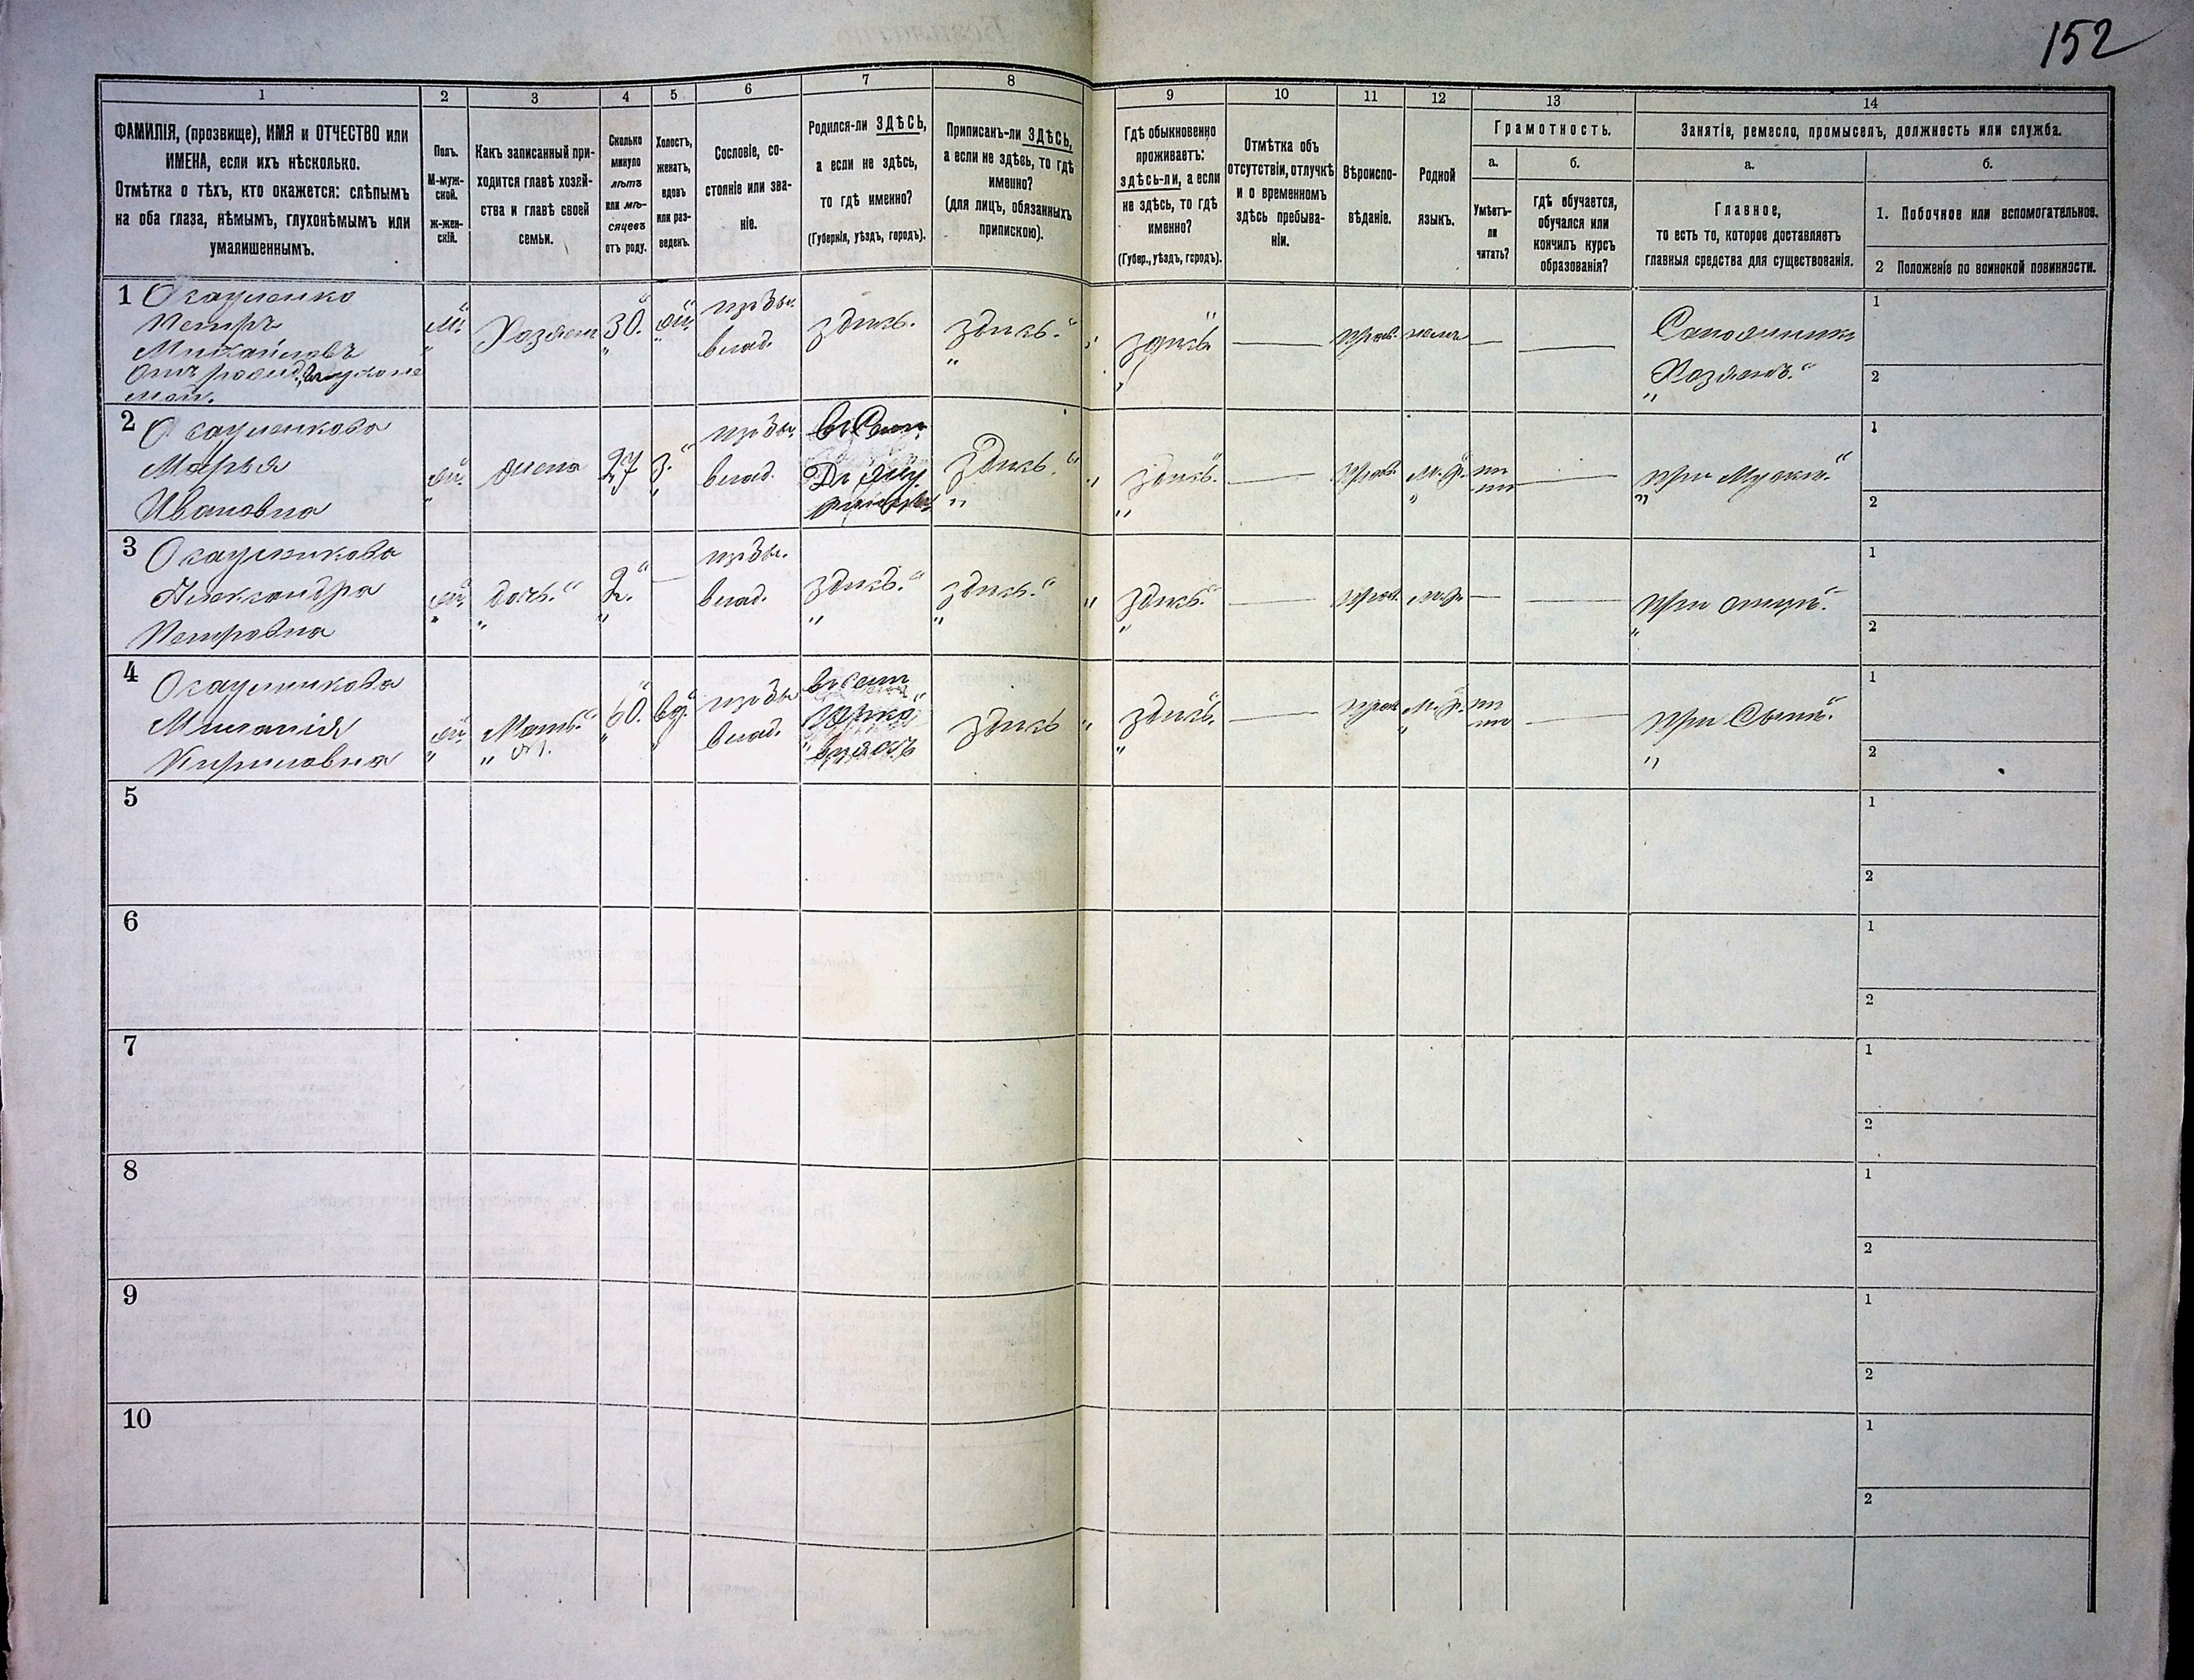 152
1
2
3
4
5
6
7
8
9
10
11
12
13
14
ФАМИЛІЯ, (прозвище), ИМЯ и ОТЧЕСТВО или
ИМЕНА, если ихъ нѣсколько.
Отмѣтка о тѣхъ, кто окажется: слѣпымъ
на оба глаза, нѣмымъ, глухонѣмымъ или
умалишеннымъ.
Полъ.
М-муж-
ской.
Ж-жен-
скій.
Какъ записанный при-
ходится главѣ хозяй-
ства и главѣ своей
семьи.
Сколько
минуло
лѣтъ
или мѣ-
сяцевъ
отъ роду.
Холостъ,
женатъ,
вдовъ
или раз-
веденъ.
Сословіе, со-
стояніе или зва-
ніе.
Родился-ли ЗДѢСЬ,
а если не здѣсь,
то гдѣ именно?
(Губернія, уѣздъ, городъ).
Приписанъ-ли ЗДѢСЬ,
а если не здѣсь, то гдѣ
именно?
(для лицъ, обязанныхъ
припискою).
Гдѣ обыкновенно
проживаетъ:
здѣсь-ли, а если
не здѣсь, то гдѣ
именно?
(Губер., уѣздъ, городъ).
Отмѣтка объ
отсутствіи, отлучкѣ
и о временномъ
здѣсь пребыва-
ніи.
Вѣроиспо-
вѣданіе.
Родной
языкъ.
Грамотность.
а.
б.
Умѣетъ-
ли
читать?
гдѣ обучается,
обучался или
кончилъ курсъ
образованія?
Занятіе, ремесло, промыселъ, должность или служба.
а.
б.
Главное,
то есть то, которое доставляетъ
главныя средства для существованія.
1. Побочное или вспомогательное.
2 Положеніе по воинской повинности.
1
Петръ
Михайловъ
М.
Хозяинъ
30.
влад.
здѣсь.
здѣсь.
здѣсь
прав.
Сапожникъ
Хозяинъ.
1
2
2
Марья
Ивановна
жена
27
З.
влад.
здѣсь.
здѣсь.
прав.
М.р.
при Мужѣ.
1
2
3
Александра
Петровна
дочь.
2.
—
влад.
здѣсь.
здѣсь.
здѣсь.
прав.
м.р.
—
при отцѣ.
1
2
4
Кириловна
Мать.
60.
вд.
влад.
здѣсь
здѣсь.
прав.
М.р.
при Сынѣ.
1
2
5
1
2
6
1
2
7
1
2
8
1
2
9
1
2
10
1
2